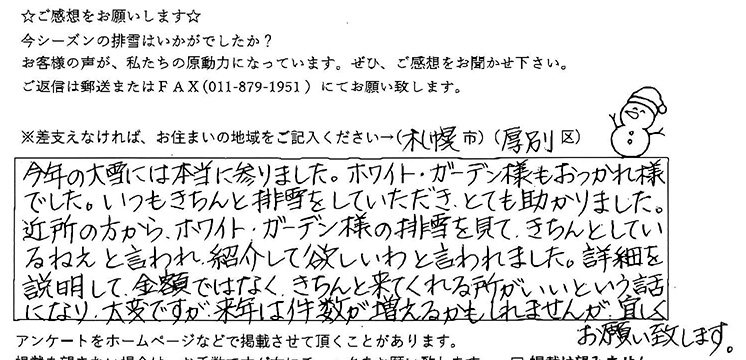 ☆ご感想をお願いします☆
今シーズンの排雪はいかがでしたか？
お客様の声が、私たちの原動力になっています。ぜひ、ご感想をお聞かせ下さい。
ご返信は郵送またはＦＡＸ(011-879-1951）にてお願い致します。
※差支えなければ、お住まいの地域をご記入ください→(札幌市）(厚別区）
今年の大雪には本当に参りました。ホワイト・ガーデン様もおつかれ様
でした。いつもきちんと排雪をしていただき、とても助かりました。
近所の方から、ホワイト・ガーデン様の排雪を見て、きちんとしてい
るねえと言われ、紹介して欲しいわと言われました。詳細を
説明して、金額ではなく、きちんと来てくれる所がいいという話
になり、大変ですが、来年は件数が増えるかもしれませんが、宜しく
お願い致します。
アンケートをホームページなどで掲載させて頂くことがあります。